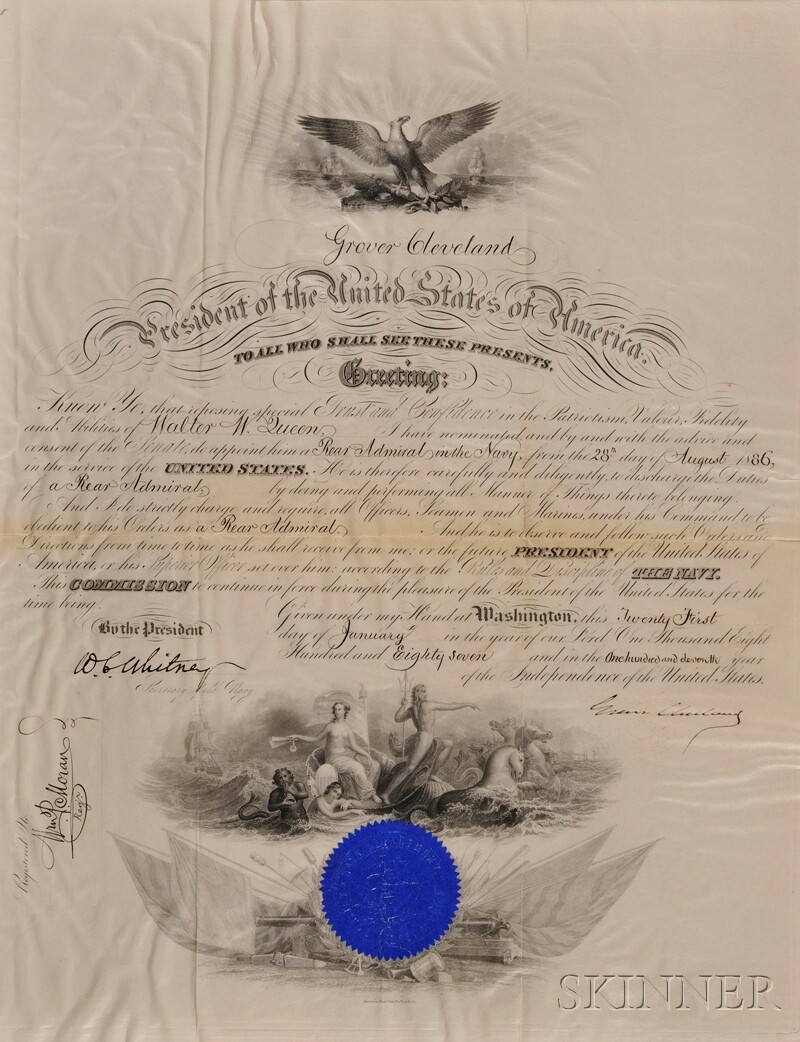 Grover Cleveland
President of the United States of America.
TO ALL WHO SHALL SEE THESE PRESENTS,
Greeting:
Know Ye, that reposing special Trust and Confidence in the Patriotism, Valour, Fidelity
and Abilities of Walter W. Queen, I have nominated and by and with the advice and
consent of the Senate, do appoint him a Rear Admiral in the Navy, from the 28th day of August 1886,
in the service of the UNITED STATES. He is therefore carefully and diligently, to discharge the Duties
of a Rear Admiral by doing and performing all Manner of Things thereto belonging.
And I do strictly charge and require, all Officers, Seamen and Marines, under his Command to be
obedient to his Orders as a Rear Admiral And he is to observe and follow such Orders and
Directions from time to time as he shall receive from me, or the future PRESIDENT of the United States of
America, or his Superior Officer set over him, according to the Rules and Discipline of THE NAVY.
This COMMISSION to continue in force during the pleasure of the President of the United States for the
time being.
Given under my Hand at Washington, this Twenty First
By the President
day of January in the year of our Lord One Thousand Eight
Hundred and Eighty Seven and in the One hundred and eleventh year
W. C. Whitney
of the Independence of the United States.
Secretary of the Navy
Grover Cleveland
Registered No.
Wm P. Moran
Regr
SKINNER